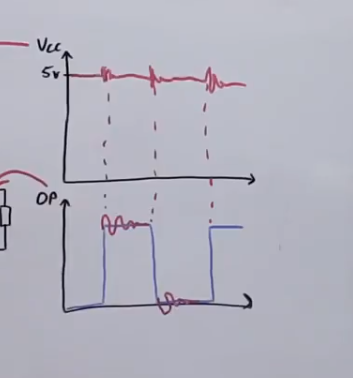 Vcc
5v
OP